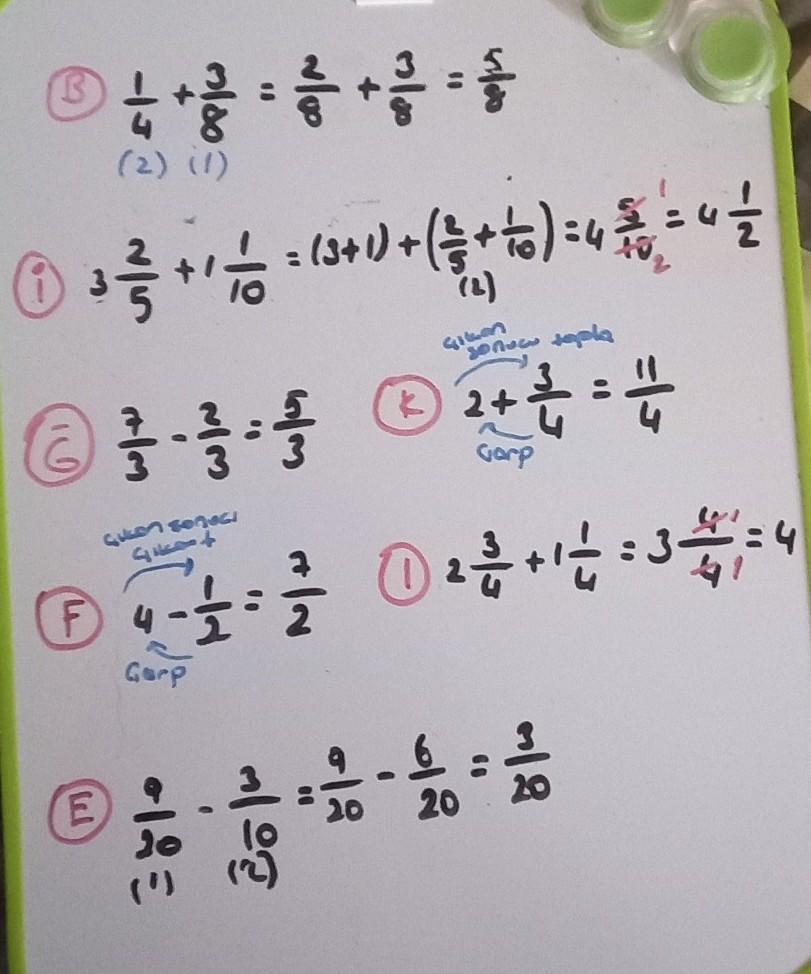 B 1/4 + 3/8 = 2/8 + 3/8 = 5/8
(2) (1)
İ 3 2/5 + 1 1/10 = (3+1) + (2/5 + 1/10) = 4 5/10 = 4 1/2
1
2
(2)
çıkan
sonucu topla
K 2 + 3/4 = 11/4
Çarp
Ğ 7/3 - 2/3 = 5/3
çıkan sonucu
çıkart
F 4 - 1/2 = 7/2
Çarp
I 2 3/4 + 1 1/4 = 3 4/4 = 4
1
1
E 9/20 - 3/10 = 9/20 - 6/20 = 3/20
(1) (2)